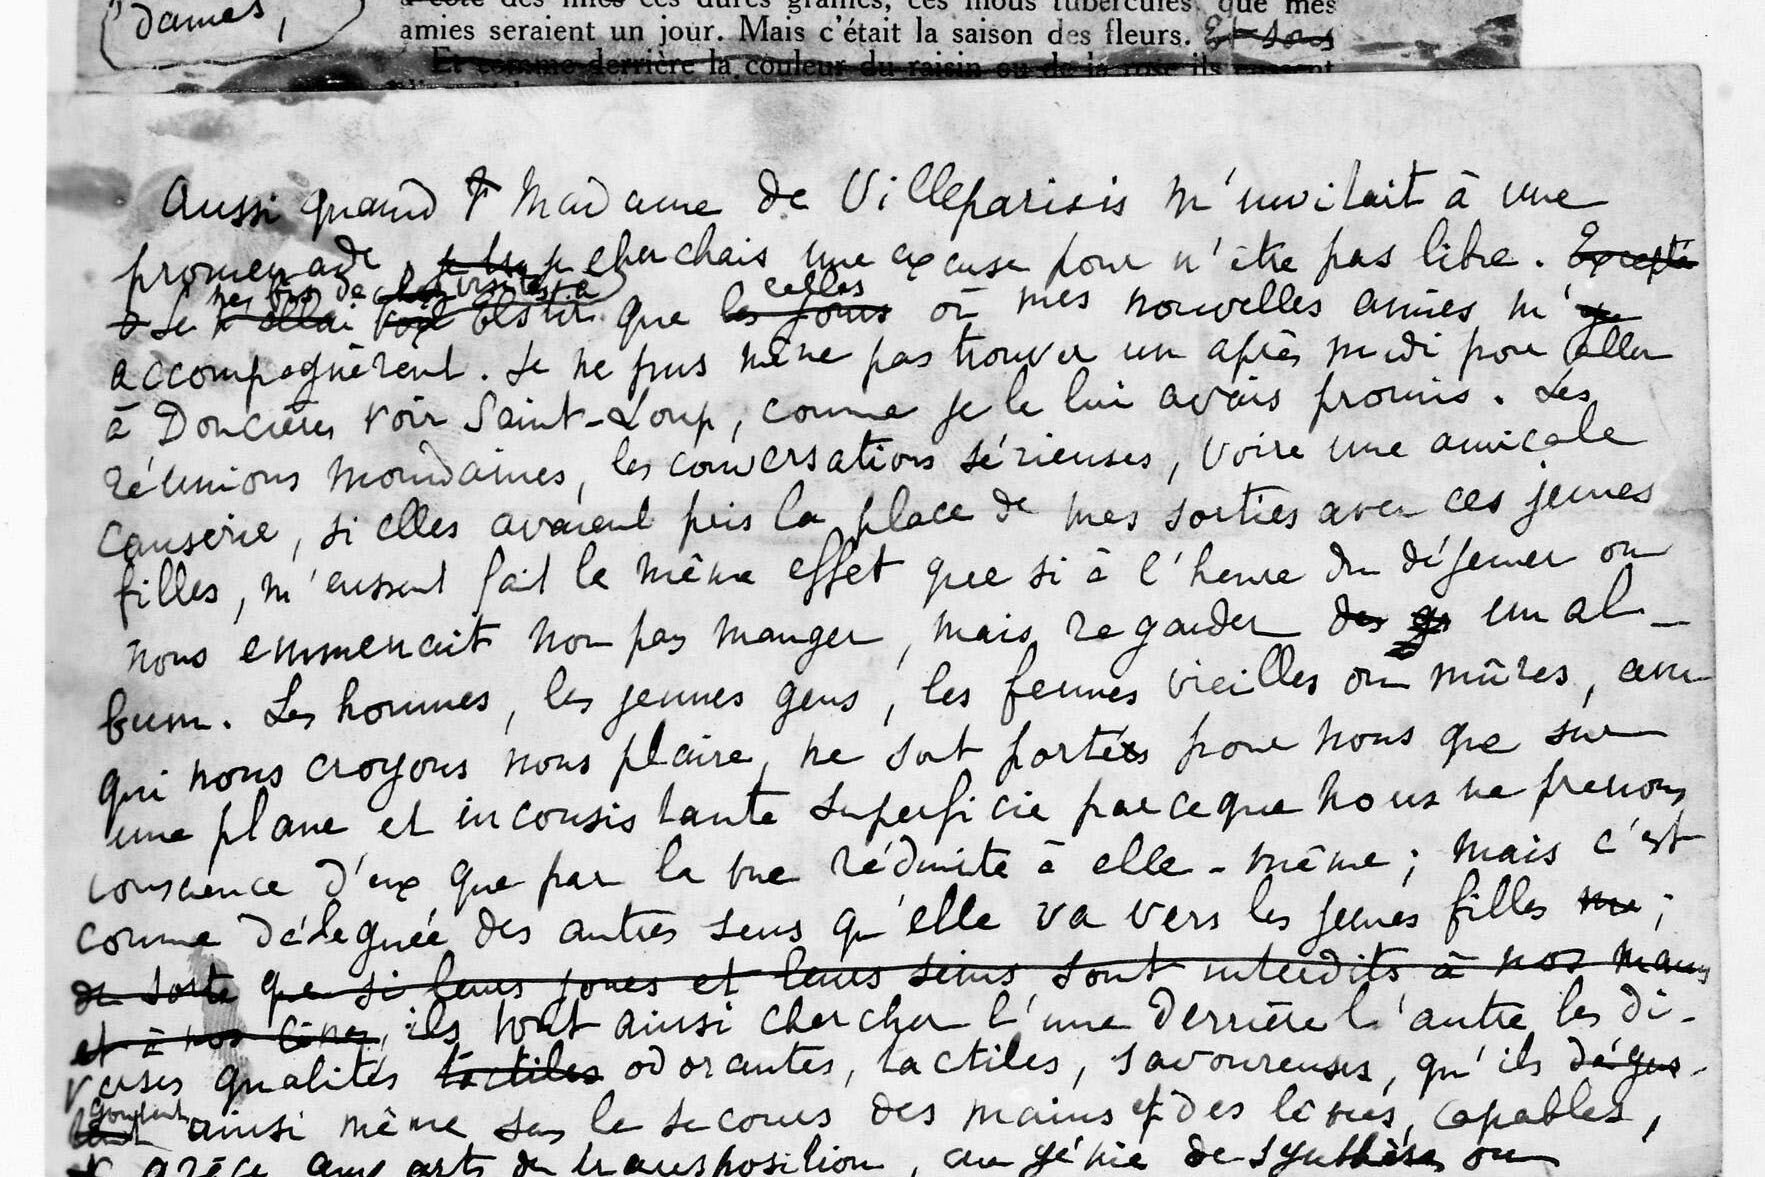 dames,
à côté des unes ces dures graines, ces mous tubercules, que mes
amies seraient un jour. Mais c'était la saison des fleurs. Et sous
Et comme derrière la couleur du raisin ou de la rose ils
Aussi quand Madame de Villeparisis m'invitait à une
promenade, je cherchais une excuse pour n'être pas libre. Excepté
ne fis de visites à
celles
Je n'allai voir Elstir que les jours où mes nouvelles amies m'
accompagnèrent. Je ne pus même pas trouver un après midi pour aller
à Doncières voir Saint-Loup, comme je le lui avais promis. Les
réunions mondaines, les conversations sérieuses, voire une amicale
causerie, si elles avaient pris la place de mes sorties avec ces jeunes
filles, m'eussent fait le même effet que si à l'heure du déjeuner on
nous emmenait non pas manger, mais regarder des un al-
bum. Les hommes, les jeunes gens, les femmes vieilles ou mûres, avec
qui nous croyons nous plaire, ne sont portés pour nous que sur
une plane et inconsistante superficie parce que nous ne prenons
conscience d'eux que par la vue réduite à elle-même; mais c'est
comme déléguée des autres sens qu'elle va vers les jeunes filles;
de sorte que si leurs joues et leurs seins sont interdits à nos mains
et à nos lèvres, ils vont ainsi chercher l'une derrière l'autre les di-
verses qualités tactiles odorantes, tactiles, savoureuses, qu'ils dégus-
goûtent
tent ainsi même sans le secours des mains et des lèvres, capables,
grâce aux arts de transposition, au génie de synthèse où